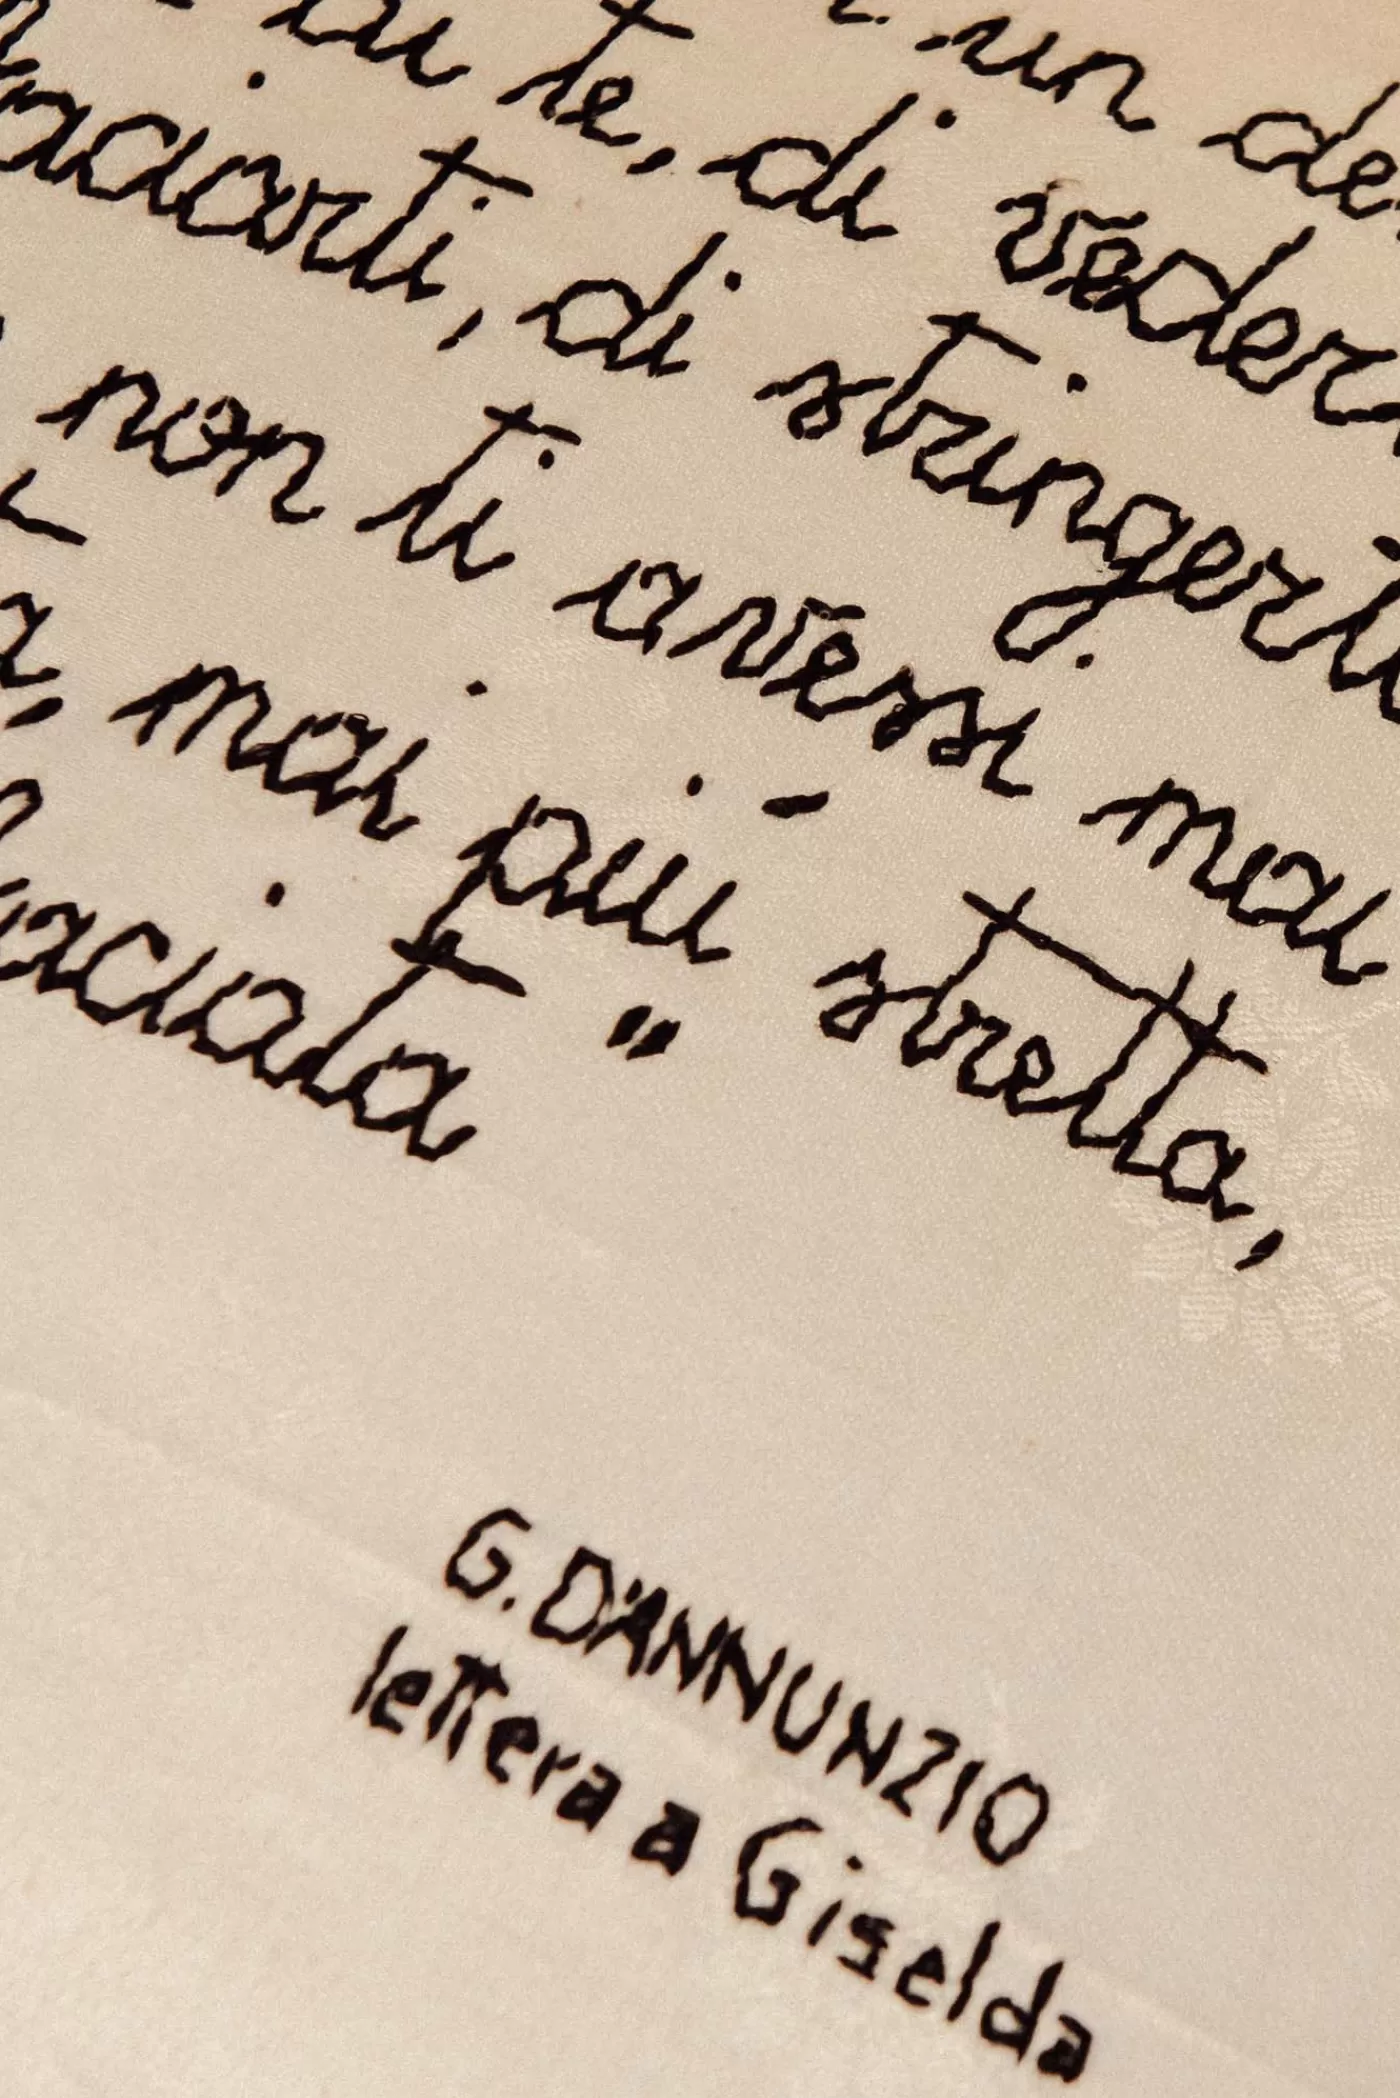 un de
di te, di veder
aciarti, di stringerti
non ti avessi mai
a, mai più stretta,
aciata "
G. D'ANNUNZIO
lettera a Giselda